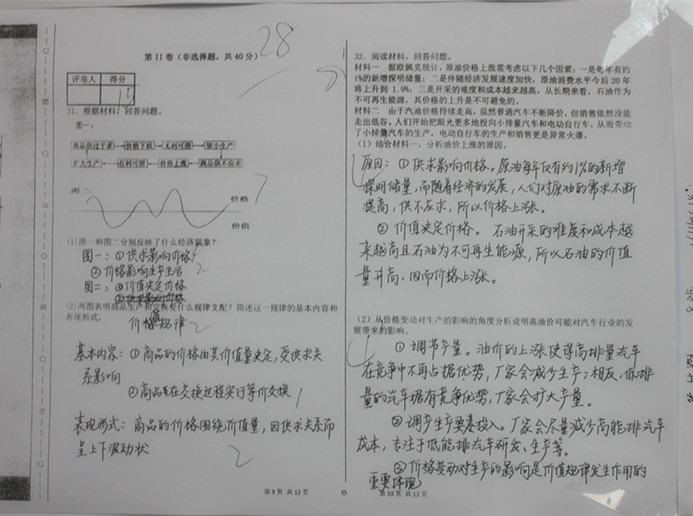 第 II 卷（非选择题，共 40 分）
28
评卷人 得分
31. 根据材料，回答问题。
图一：
商品供过于求 价格下跌 无利可图 缩小生产
扩大生产 有利可图 价格上涨 商品供不应求
图二：
价格
价值
(1)图一和图二分别反映了什么经济现象？
图一：①供求影响价格
②价格影响生产生活
图二：①价值决定价格
(2)两图表明商品生产和交换受什么规律支配？简述这一规律的基本内容和
表现形式。
价值规律
基本内容：①商品的价格由其价值量决定，受供求关
系影响
②商品在交换过程实行等价交换
表现形式：商品的价格围绕价值量，因供求关系而
呈上下波动状
第 9 页 共 12 页
32. 阅读材料，回答问题。
材料一 据欧佩克统计，原油价格上涨需考虑以下几个因素：一是每年有约
1%的新增探明储量；二是伴随经济发展速度加快，原油消费水平今后 20 年
将上升到 1.9%；三是开采的难度和成本越来越高。从长期来看，石油作为
不可再生能源，其价格的上升是不可避免的。
材料二 由于汽油价格持续走高，虽然普通汽车不断降价，但销售依然没能
走出低谷。人们开始把眼光更多地投向小排量汽车和电动自行车，从而带动
了小排量汽车的生产，电动自行车的生产和销售更是异常火爆。
(1) 结合材料一，分析油价上涨的原因。
原因：①供求影响价格。原油每年仅有约1%的新增
探明储量，而随着经济的发展，人们对原油的需求不断
提高，供不应求，所以价格上涨。
②价值决定价格。石油开采的难度和成本越
来越高且石油为不可再生能源，所以石油的价值
量升高，因而价格上涨。
(2) 从价格变动对生产的影响的角度分析说明高油价可能对汽车行业的发
展带来的影响。
①调节产量。油价的上涨使得高排量汽车
在竞争中不再占据优势，厂家会减少生产；相反，低排
量的汽车据有竞争优势，厂家会扩大产量。
②调节生产要素投入。厂家会尽量减少高能排汽车
成本，专注于低能排汽车研发、生产等。
③价格变动对生产的影响是价值规律发生作用的
重要体现
第 10 页 共 12 页